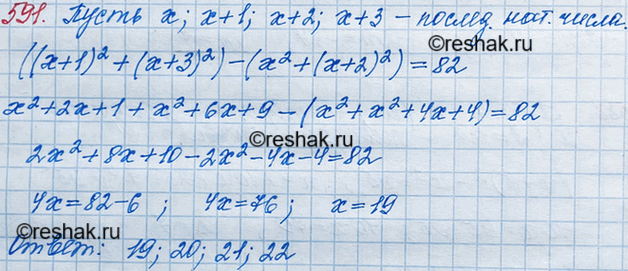 591. Пусть x; x+1; x+2; x+3 – послед. нат. числа.
((x+1)² + (x+3)²) – (x² + (x+2)²) = 82
©reshak.ru
x² + 2x + 1 + x² + 6x + 9 – (x² + x² + 4x + 4) = 82
2x² + 8x + 10 – 2x² – 4x – 4 = 82
4x = 82 – 6 ; 4x = 76 ; x = 19
©reshak.ru
Ответ: 19; 20; 21; 22